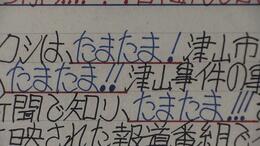 クシは、たまたま!津山市
たまたま!!津山事件の事
新聞で知り、たまたま!!!
映された報道番組で